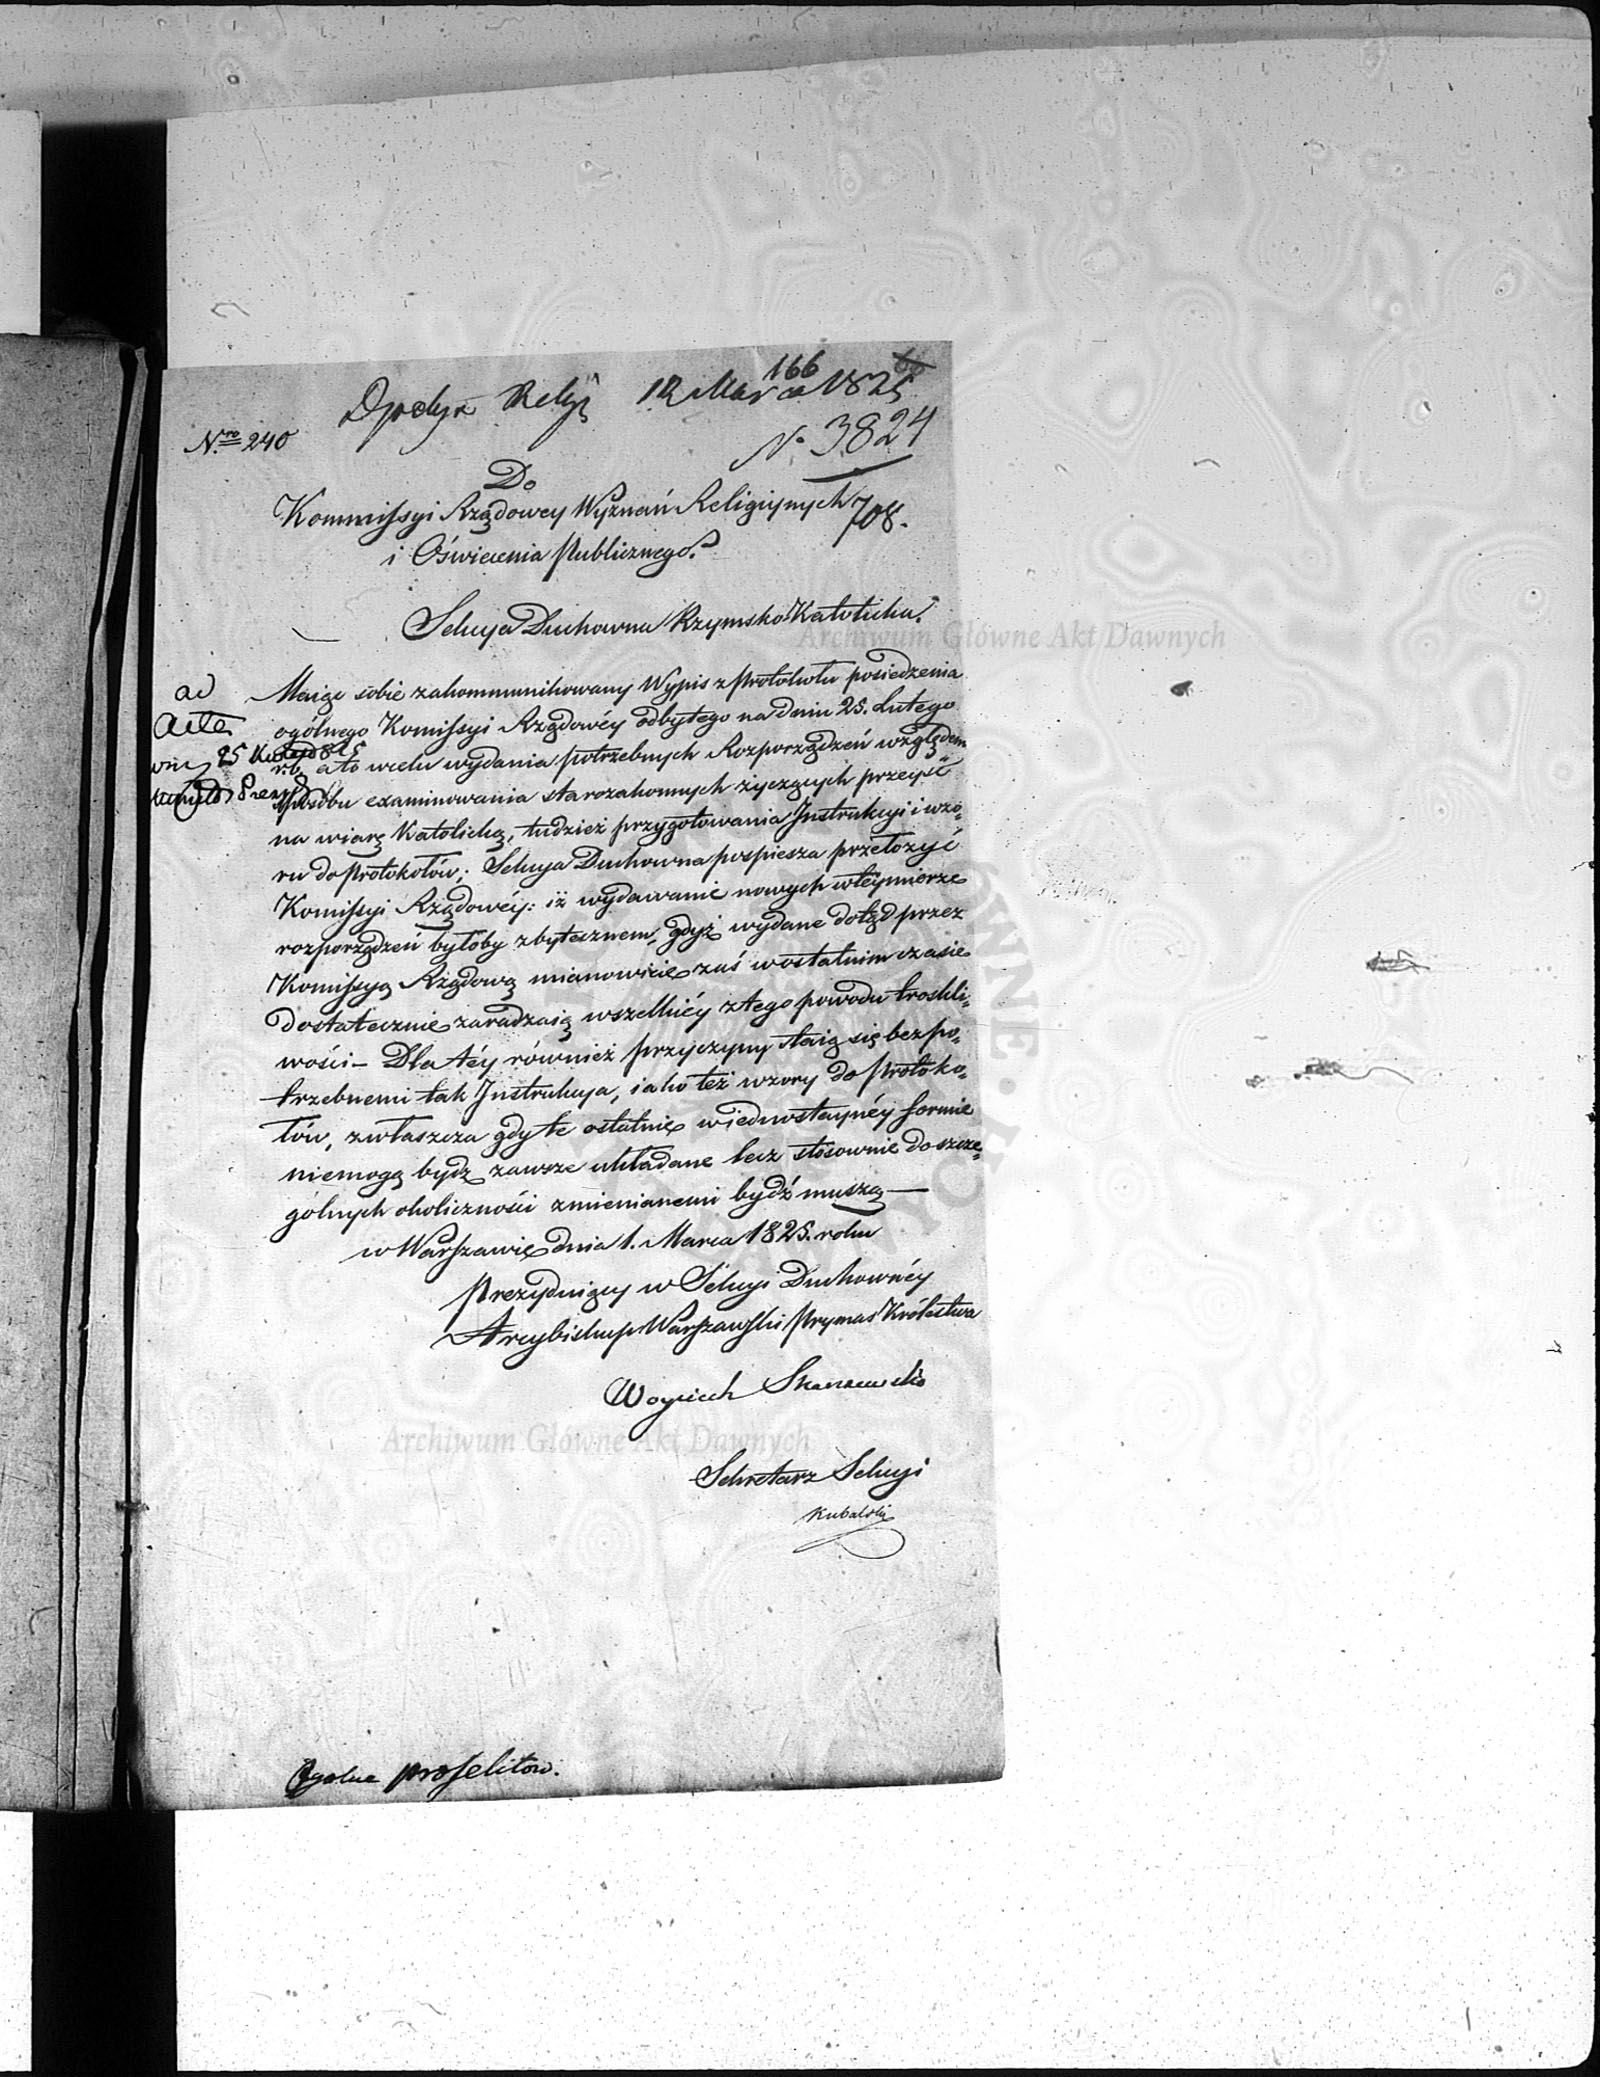 166
Dyrekcya Relij 12 Marca 1825
Nro 240
N. 3824
708.
Do
Kommissyi Rządowey Wyznań Religiynych
i Oświecenia Publicznego.
Sekcya Duchowna Rzymsko Katolicka.
ad
acta
Maiąc sobie zakommunikowany Wypis z Protokołu posiedzenia
ogólnego Komissyi Rządowéy odbytego na dniu 25. Lutego
r.b. a to w celu wydania potrzebnych Rozporządzeń względem
sposobu examinowania starozakonnych życzących przeyść
na wiarę Katolicką, tudzież przygotowania Instrukcyi i wzo-
ru do Protokołów; Sekcya Duchowna pospiesza przełożyć
Komissyi Rządowéy: iż wydawanie nowych w téy mierze
rozporządzeń byłoby zbytecznem, gdyż wydane dotąd przez
Komissyą Rządową mianowicie zaś w ostatnim czasie
dostatecznie zaradzaią wszelkiéy z tego powodu troskli-
wości – Dla téy również przyczyny staią się bezpo-
trzebnemi tak Instrukcya, iako też wzory do Protoko-
łów, zwłaszcza gdy te ostatnie w iednostaynéy formie
niemogą bydź zawsze układane lecz stosownie do szcze-
gólnych okoliczności zmienianemi bydź muszą —
w Warszawie dnia 1. Marca 1825. roku
Prezyduiący w Sekcyi Duchownéy
Arcybiskup Warszawski Prymas Królestwa
Woyciech Skarszewski
Sekretarz Sekcyi
Kubalski
Ogólne proselitow.
Archiwum Główne Akt Dawnych
Archiwum Główne Akt Dawnych